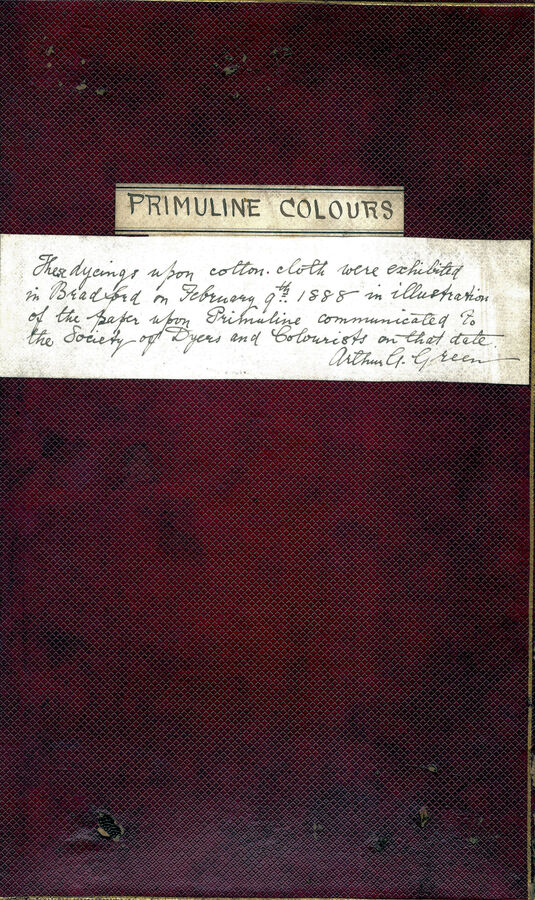 PRIMULINE COLOURS
These dyeings upon cotton-cloth were exhibited
in Bradford on February 9th. 1888 in illustration
of the paper upon Primuline communicated to
the Society of Dyers and Colourists on that date.
Arthur G. Green